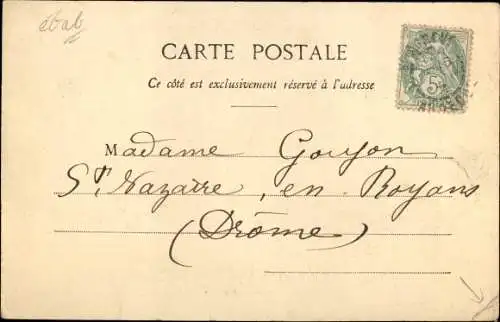 ébab
CARTE POSTALE
Ce côté est exclusivement réservé à l'adresse
5c
Madame Goujon
St Nazaire, en Royans
(Drôme)